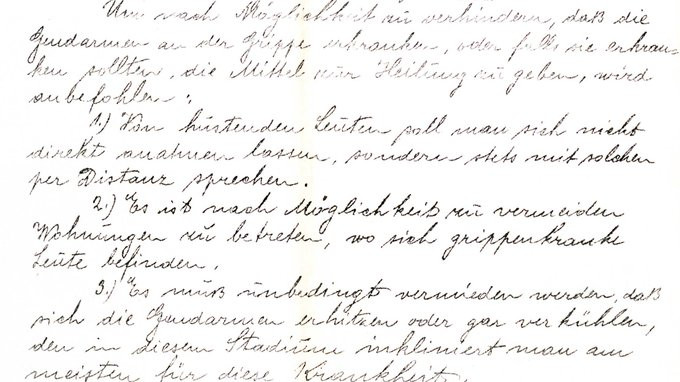 Um nach Möglichkeit zu verhindern, daß die
Gendarmen an der Grippe erkranken, oder falls sie erkran-
ken sollten, die Mittel zur Heilung zu geben, wird
anbefohlen:
1.) Von hustenden Leuten soll man sich nicht
direkt anatmen lassen, sondern stets mit solchen
per Distanz sprechen.
2.) Es ist nach Möglichkeit zu vermeiden
Wohnungen zu betreten, wo sich grippenkranke
Leute befinden.
3.) Es muß unbedingt vermieden werden, daß
sich die Gendarmen erhitzen oder gar verkühlen,
den in diesem Stadium inkliniert man am
meisten für diese Krankheit.